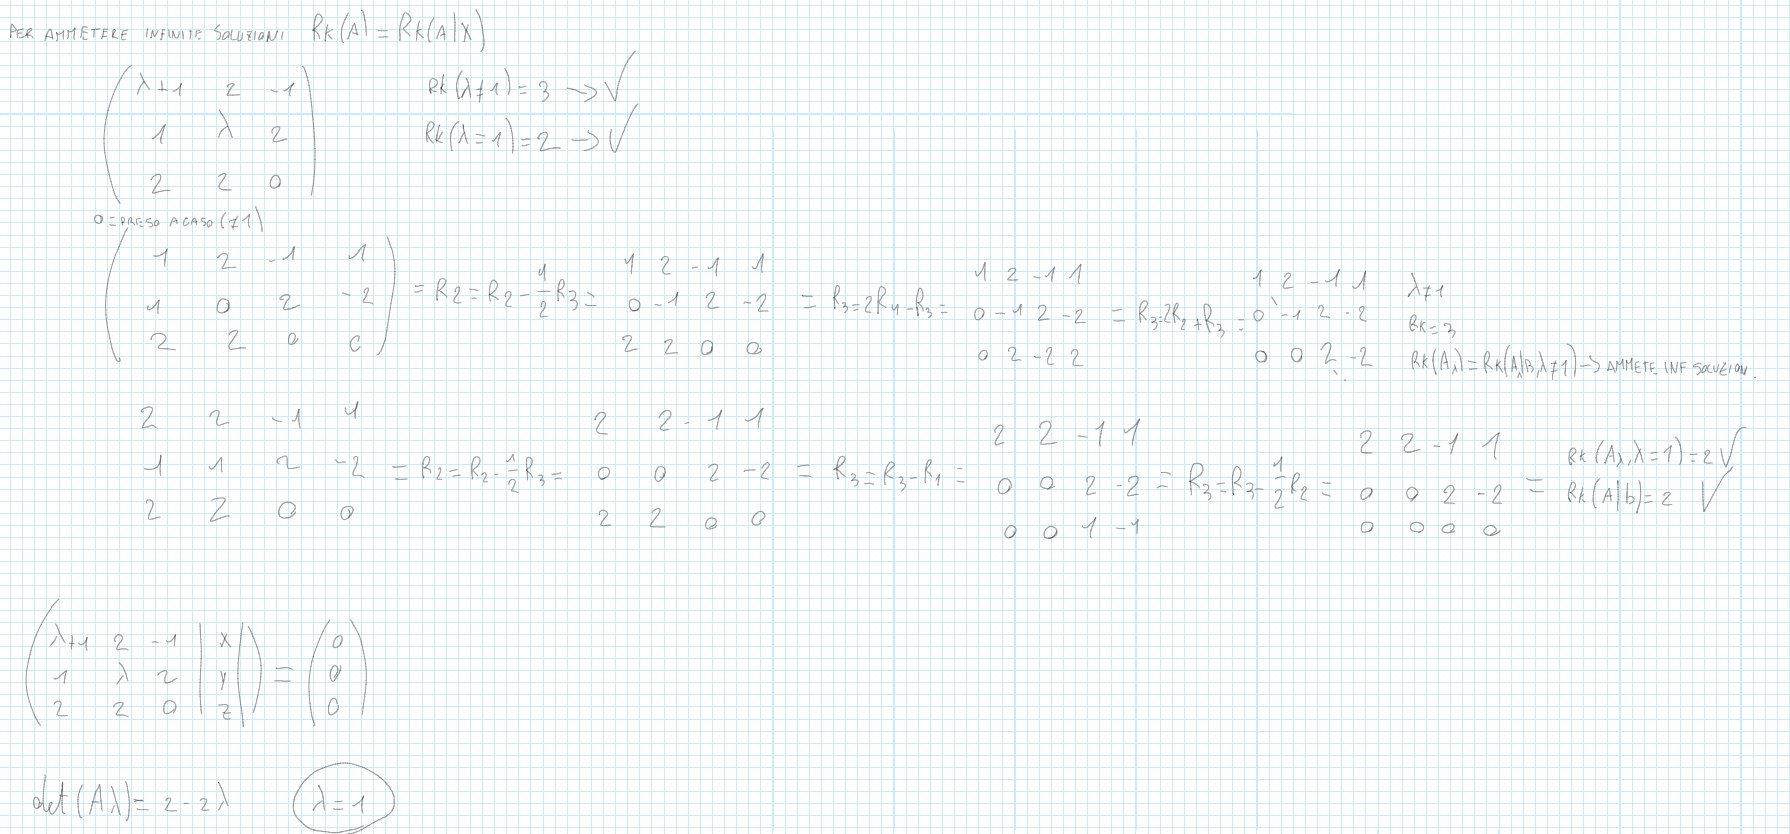 PER AMMETERE INFINITE SOLUZIONI Rk(A) = Rk(A|X)
λ+1 2 -1
1 λ 2
2 2 0
Rk(λ≠1) = 3 → √
Rk(λ=1) = 2 → √
0 = PRESO A CASO (≠1)
1 2 -1 1
1 0 2 -2
2 2 0 0
= R2 = R2 - 1/2 R3 =
1 2 -1 1
0 -1 2 -2
2 2 0 0
= R3 = 2R1 - R3 =
1 2 -1 1
0 -1 2 -2
0 2 -2 2
= R3 = 2R2 + R3 =
1 2 -1 1
0 -1 2 -2
0 0 2 -2
λ≠1
Rk = 3
Rk(Aλ) = Rk(Aλ|B, λ≠1) → AMMETE INF SOLUZION.
2 2 -1 1
1 1 2 -2
2 2 0 0
= R2 = R2 - 1/2 R3 =
2 2 -1 1
0 0 2 -2
2 2 0 0
= R3 = R3 - R1 =
2 2 -1 1
0 0 2 -2
0 0 1 -1
= R3 = R3 - 1/2 R2 =
2 2 -1 1
0 0 2 -2
0 0 0 0
=
Rk(Aλ, λ=1) = 2 √
Rk(A|b) = 2 √
λ+1 2 -1 | x | = 0
1 λ 2 | y | 0
2 2 0 | z | 0
det(Aλ) = 2 - 2λ λ = 1